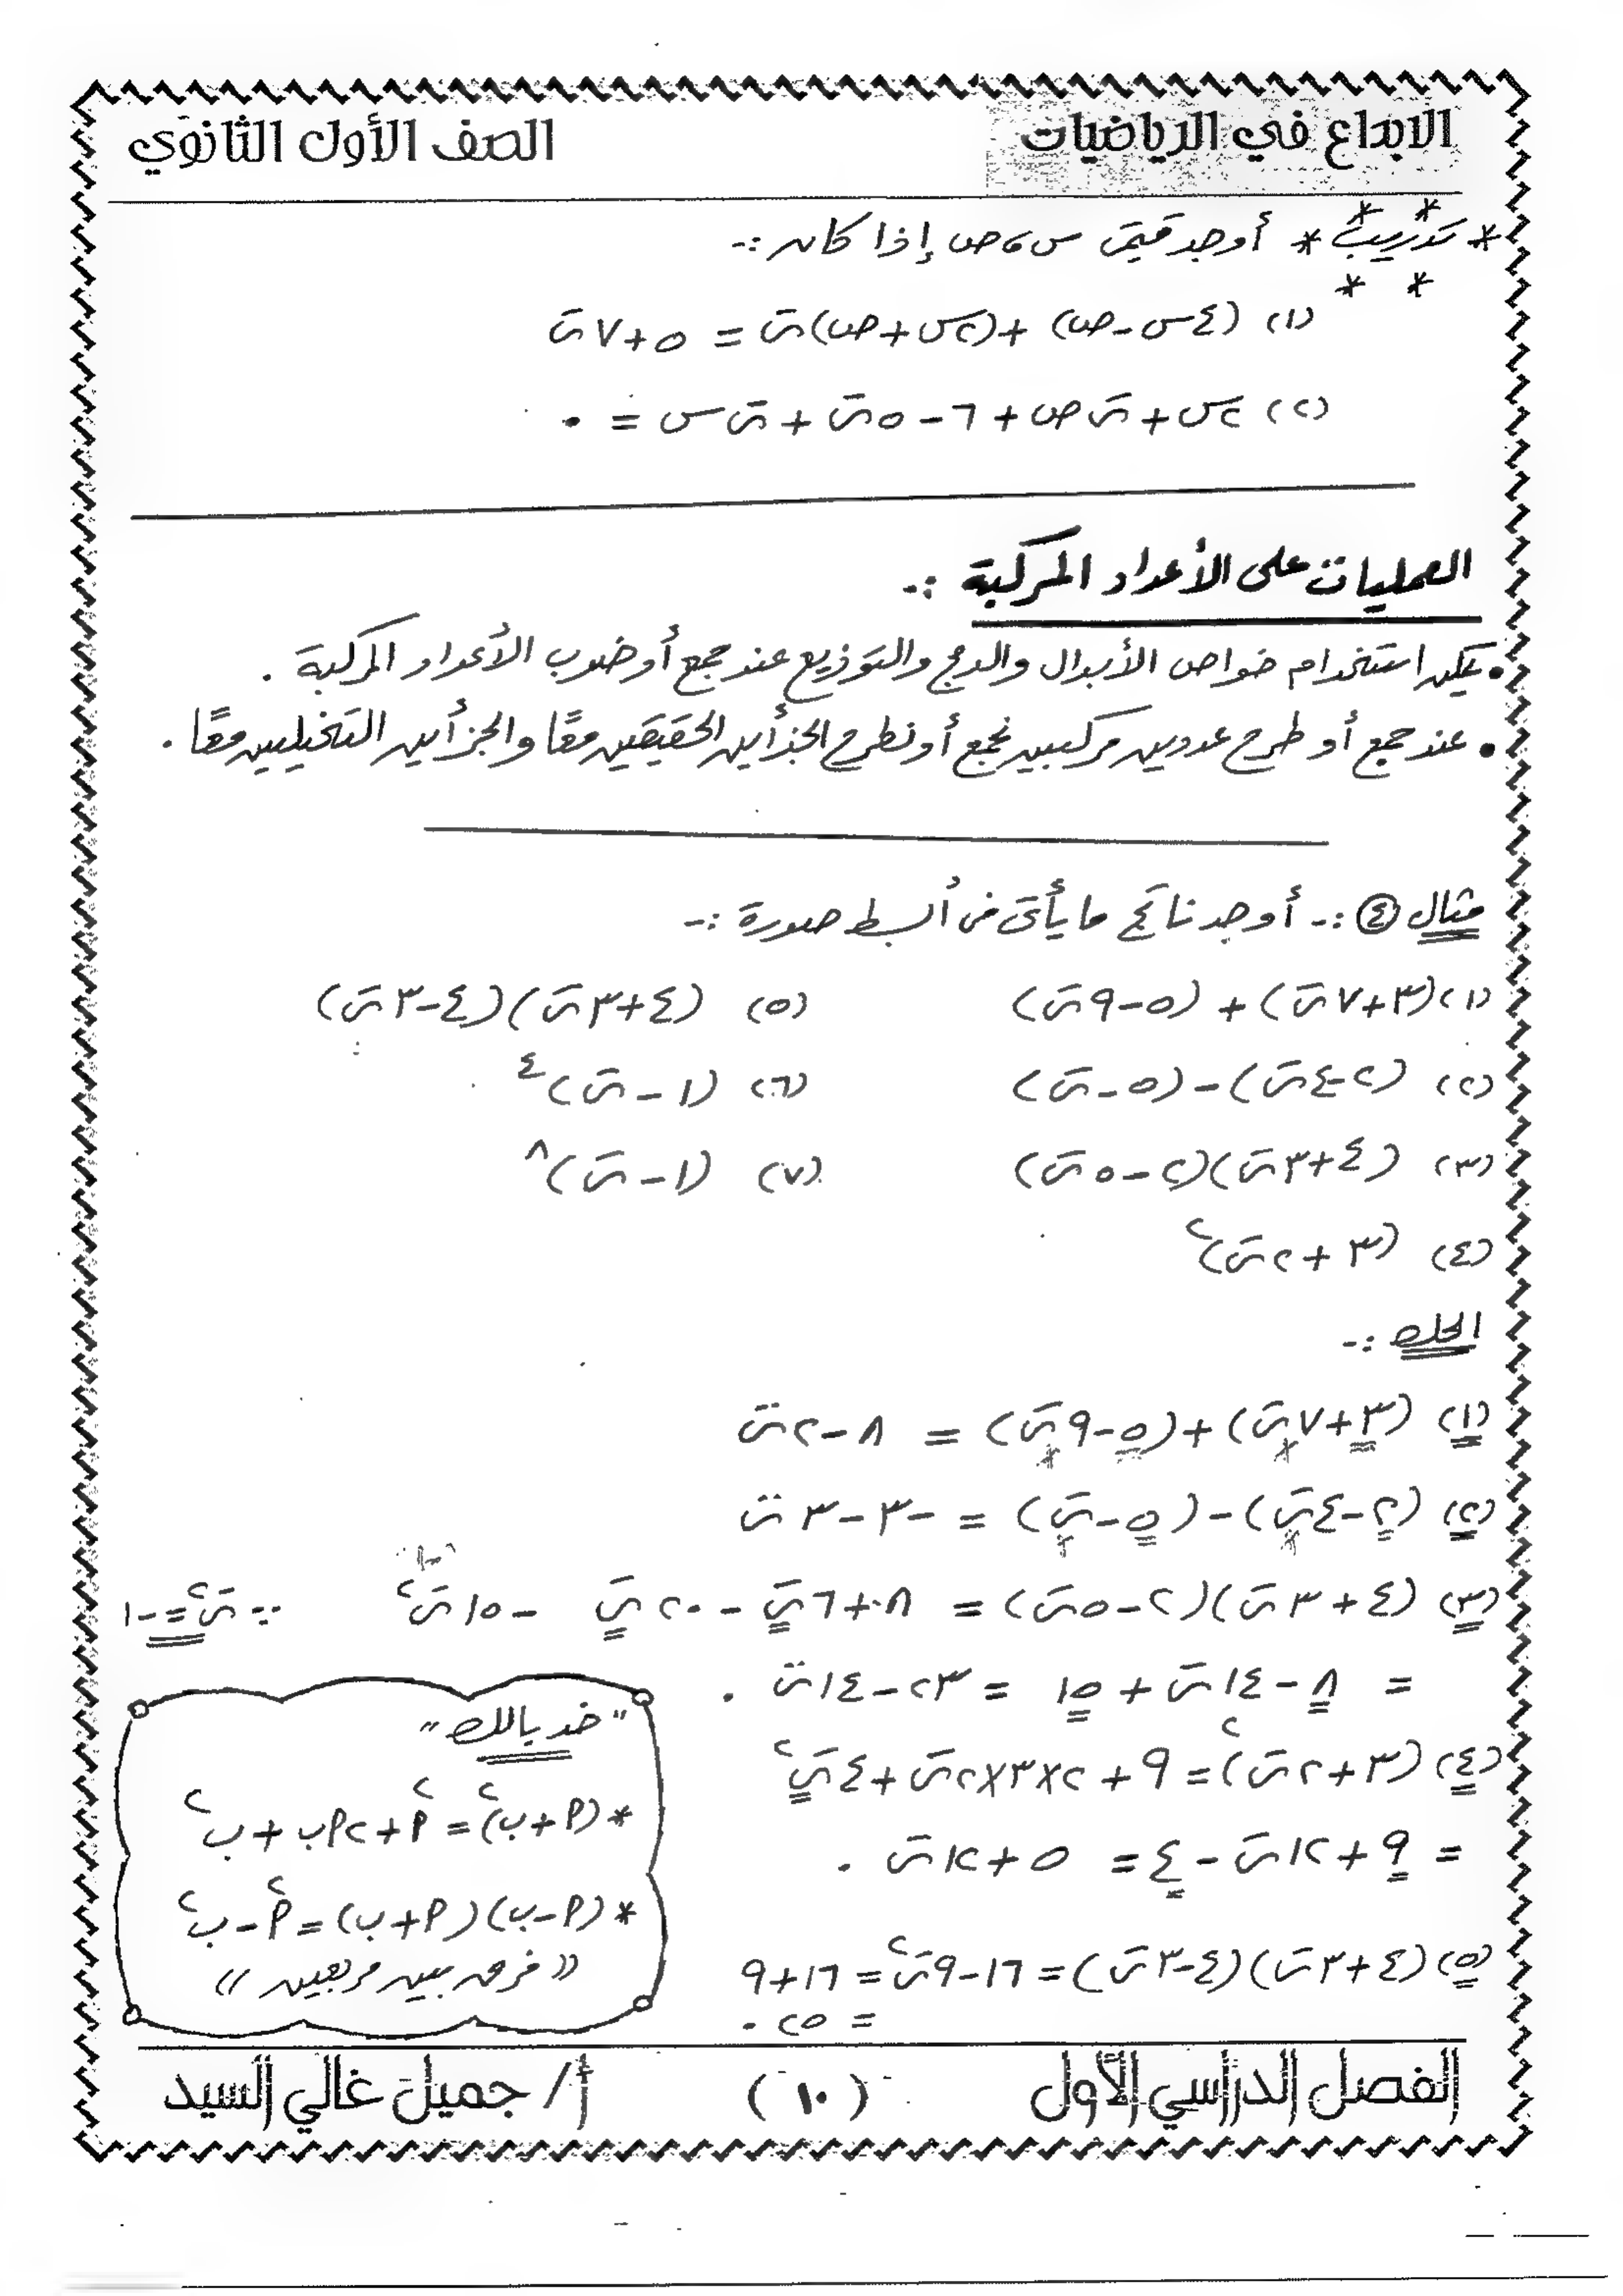 الابداع في الرياضيات الصف الأول الثانوي
* تدريب * أوجد قيمتى س ، ص إذا كان :-
(١) (٤س - ص) + (٢س + ص)ت = ٥ + ٧ت
(٢) ٢س + ت ص + ٦ - ٥ت + ت س = ٠
العمليات على الأعداد المركبة :-
• يمكن استخدام خواص الأبدال والدمج والتوزيع عند جمع أو ضرب الأعداد المركبة .
• عند جمع أو طرح عددين مركبيين نجمع أو نطرح الجزأين الحقيقين معًا والجزأين التخيليين معًا .
مثال ④ :- أوجد ناتج ما يأتى فى أبسط صورة :-
(١) (٣+٧ت) + (٥-٩ت) (٥) (٤+٣ت)(٤-٣ت)
(٢) (٢-٤ت) - (٥-ت) (٦) (١-ت)^٤
(٣) (٤+٣ت)(٢-٥ت) (٧) (١-ت)^٨
(٤) (٣+٢ت)^٢
الحل :-
(١) (٣+٧ت) + (٥-٩ت) = ٨-٢ت
(٢) (٢-٤ت) - (٥-ت) = -٣-٣ت
(٣) (٤+٣ت)(٢-٥ت) = ٨+٦ت - ٢٠ت - ١٥ت^٢ ∵ ت^٢ = -١
= ٨-١٤ت+١٥ = ٢٣-١٤ت .
(٤) (٣+٢ت)^٢ = ٩+٢×٣×٢ت+٤ت^٢
= ٩+١٢ت-٤ = ٥+١٢ت .
(٥) (٤+٣ت)(٤-٣ت) = ١٦-٩ت^٢ = ١٦+٩
= ٢٥ .
"خد بالك"
* (أ+ب)^٢ = أ^٢+٢أب+ب^٢
* (أ-ب)(أ+ب) = أ^٢-ب^٢
«فرق بين مربعين»
الفصل الدراسي الأول (١٠) أ/ جميل غالي السيد